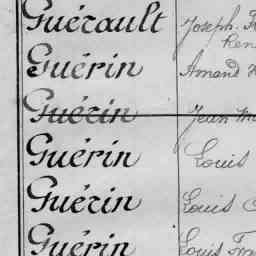 Guérault Joseph
Guérin Amand
Guérin Jean
Guérin Louis
Guérin Louis
Guérin Louis